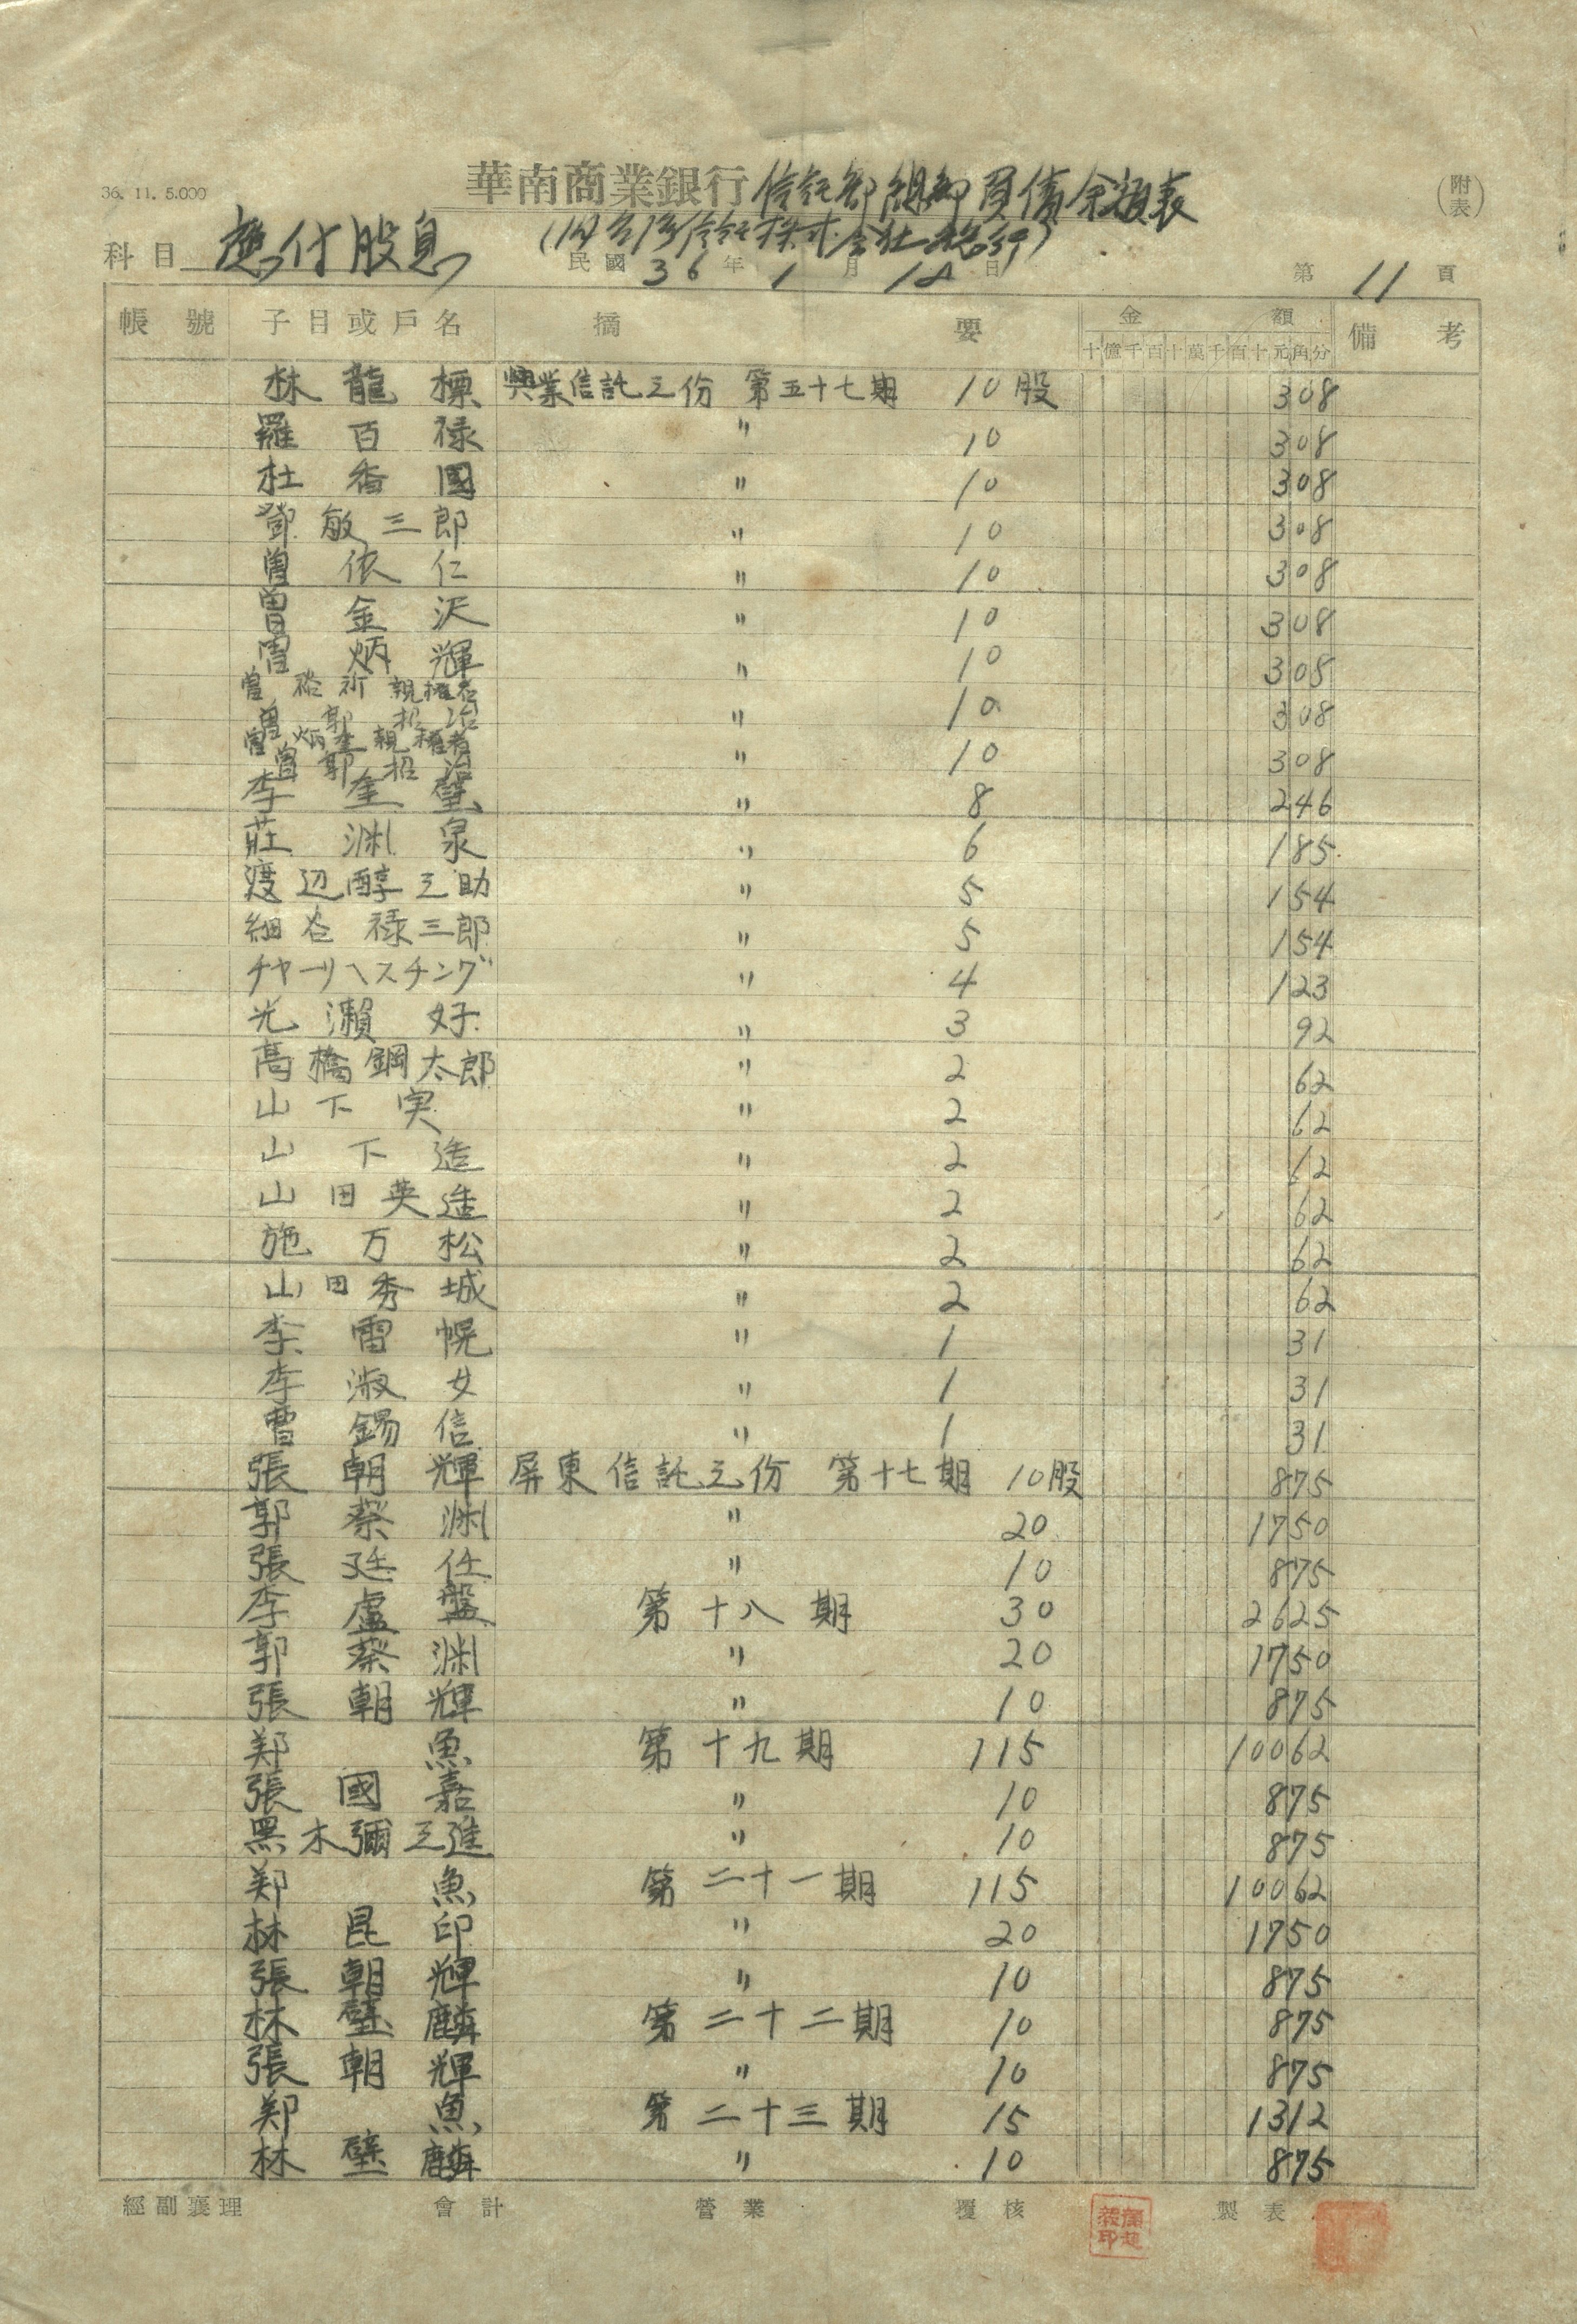 36. 11. 5.000
華南商業銀行信託部總部負債余額表
(旧台湾信託株式会社總行)
(附表)
科目 應付股息
民國 36 年 1 月 18 日
第 11 頁
帳號 子目或戶名 摘要 金額 備考
十億千百十萬千百十元角分
林龍標 興業信託之份 第五十七期 10股 308
羅百祿 〃 10 308
杜香國 〃 10 308
鄧敏三郎 〃 10 308
曽依仁 〃 10 308
曽金沢 〃 10 308
曽炳輝 〃 10 308
曽 親権者
曽郭招治 〃 10 308
曽炳奎親権者
曽郭招治 〃 10 308
李奎璧 〃 8 246
莊渊泉 〃 6 185
渡辺醇之助 〃 5 154
細谷禄三郎 〃 5 154
チャーリヘスチング 〃 4 123
光瀬好 〃 3 92
高橋鋼太郎 〃 2 62
山下実 〃 2 62
山下造 〃 2 62
山田英造 〃 2 62
施万松 〃 2 62
山田秀城 〃 2 62
李雷幌 〃 1 31
李淑女 〃 1 31
曹錫信 〃 1 31
張朝輝 屏東信託之份 第十七期 10股 875
郭蔡渊 〃 20 1750
張廷任 〃 10 875
李盧盤 第十八期 30 2625
郭蔡渊 〃 20 1750
張朝輝 〃 10 875
鄭魚 第十九期 115 10062
張國嘉 〃 10 875
黑木彌之進 〃 10 875
鄭魚 第二十一期 115 10062
林昆印 〃 20 1750
張朝輝 〃 10 875
林璧麟 第二十二期 10 875
張朝輝 〃 10 875
鄭魚 第二十三期 15 1312
林璧麟 〃 10 875
經副襄理 會計 營業 覆核 製表